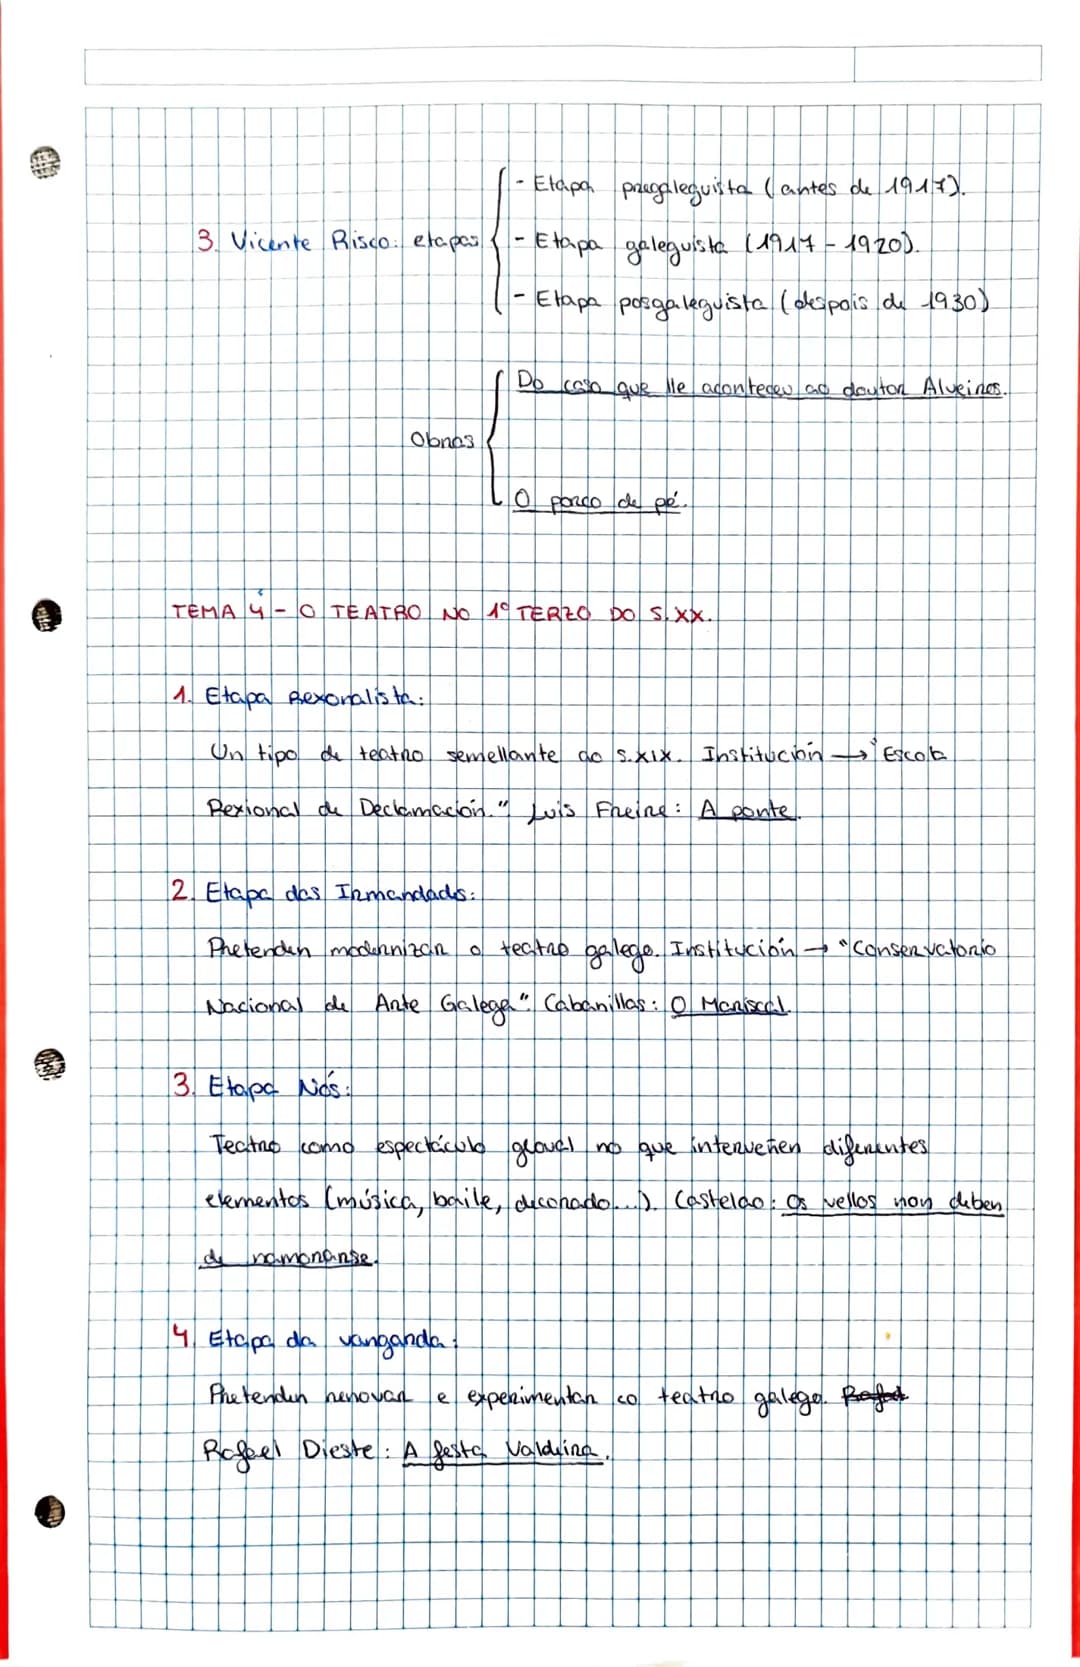 - Etapa pregaleguista (antes de 1917).
3. Vicente Risco: etapas - Etapa galeguista (1917 - 1920).
- Etapa posgaleguista (despois de 1930)
Do caso que lle aconteceu ao doutor Alveiros.
Obras
O porco de pé.
TEMA 4 - O TEATRO NO 1º TERZO DO S. XX.
1. Etapa Rexonalista:
Un tipo de teatro semellante ao S.XIX. Institución → "Escola
Rexional de Declamación." Luis Freire: A ponte.
2. Etapa das Irmandads:
Pretenden modernizar o teatro galego. Institución → "Conservatorio
Nacional de Arte Galega". Cabanillas: O Mariscal.
3. Etapa Nós:
Teatro como espectáculo gloval no que interveñen diferentes
elementos (música, baile, decorado...). Castelao: Os vellos non deben
de namorarse.
4. Etapa da vangarda:
Pretenden renovar e experimentar co teatro galego.
Rafael Dieste: A festa Valdeira.